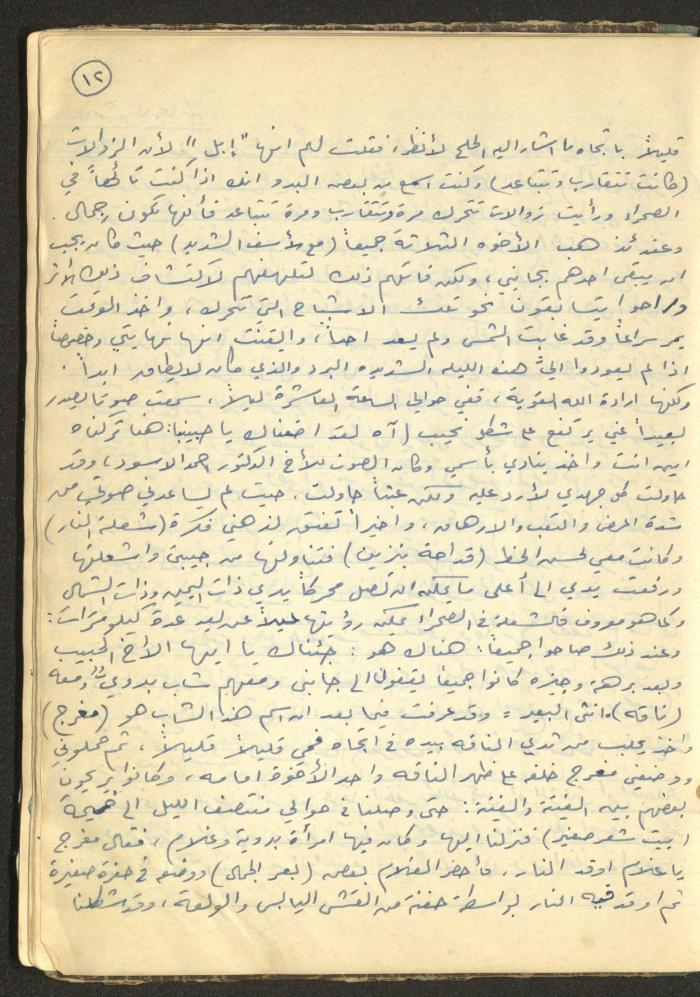 ١٢
قليلاً باتجاه ما اشار اليه الملح لأنظر، فقلت لهم انها "إبل"! لأن الزوالات
(كانت تتقارب وتتباعد) وكنت اسمع من بعض البدو انك اذا كنت تائهاً في
الصحراء ورأيت زوالات تتحرك مرة تتقارب ومرة تتباعد فأنها تكون جمال.
وعندئذ هب الأخوه الثلاثة جميعاً (مع لأسف الشديد) حيث كان يجب
ان يبقى احدهم بجانبي، ولكن فاتهم ذلك لتلهفهم لاكتشاف ذلك الأثر
وراحوا يتسابقون نحو تلك الاشباح التي تتحرك، واخذ الوقت
يمر سراعاً وقد غابت الشمس ولم يعد احداً، وايقنت انها نهايتي وخصوصاً
اذا لم يعودوا اليّ هذه الليله الشديده البرد والذي كان لا يطاق ابداً.
ولكنها ارادة الله القوية، ففي حوالي الساعة العاشرة ليلاً، سمعت صوتاً يصدر
بعيداً عني يرتفع على شكل نحيب (آه لقد اضعناك يا حبيبنا: هنا تركناه
اين انت واخذ ينادي بأسمي وكان الصوت للأخ الدكتور احمد الاسود، وقد
حاولت كل جهدي لأرد عليه ولكن عبثاً حاولت، حيث لم يساعدني صوتي من
شدة المرض والتعب والارهاق، واخيراً تفتق لذهني فكرة (شعلة النار)
وكانت معي لحسن الحظ (قداحة بنزين) فتناولتها من جيبي واشعلتها
ورفعت يدي الى أعلى ما يمكن ان تصل محركاً يدي ذات اليمين وذات الشمال
وكما هو معروف فالشعلة في الصحراء يمكن رؤيتها ليلاً عن بعد عدة كيلومترات:
وعند ذلك صاحوا جميعاً: هناك هو: جئناك يا ايها الاخ الحبيب
وبعد برهة وجيزه كانوا جميعاً يقفون الى جانبي ومعهم شاب بدوي ومعه
(ناقه) انثى البعير = وقد عرفت فيما بعد ان اسم هذا الشاب هو (مفرج)
واخذ يحلب من ثدي الناقه بيده في اتجاه فمي قليلاً قليلاً، ثم حملوني
ووضعني مفرج خلفه على ظهر الناقه واحد الأخوة امامه، وكانوا يريحون
بعضهم بين الفينة والفينة: حتى وصلنا في حوالي منتصف الليل الى خيمة
(بيت شعر صغير) فنزلنا اليها وكان فيها امرأة بدوية وغلام، فقال مفرج
يا غلام اوقد النار. فأحضر الغلام بعض (بعر الجمال) ووضعه في حفرة صغيرة
ثم اوقد فيه النار بواسطة حفنة من القش اليابس والولعة، وقد